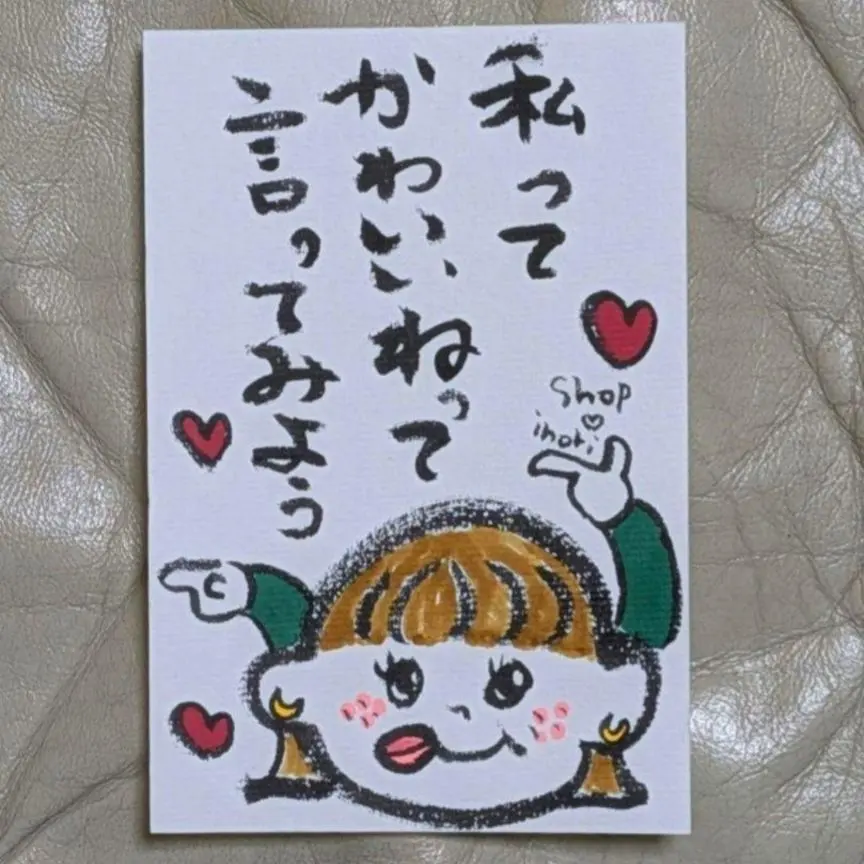 私って
かわいいねって
言ってみよう
Shop
inori